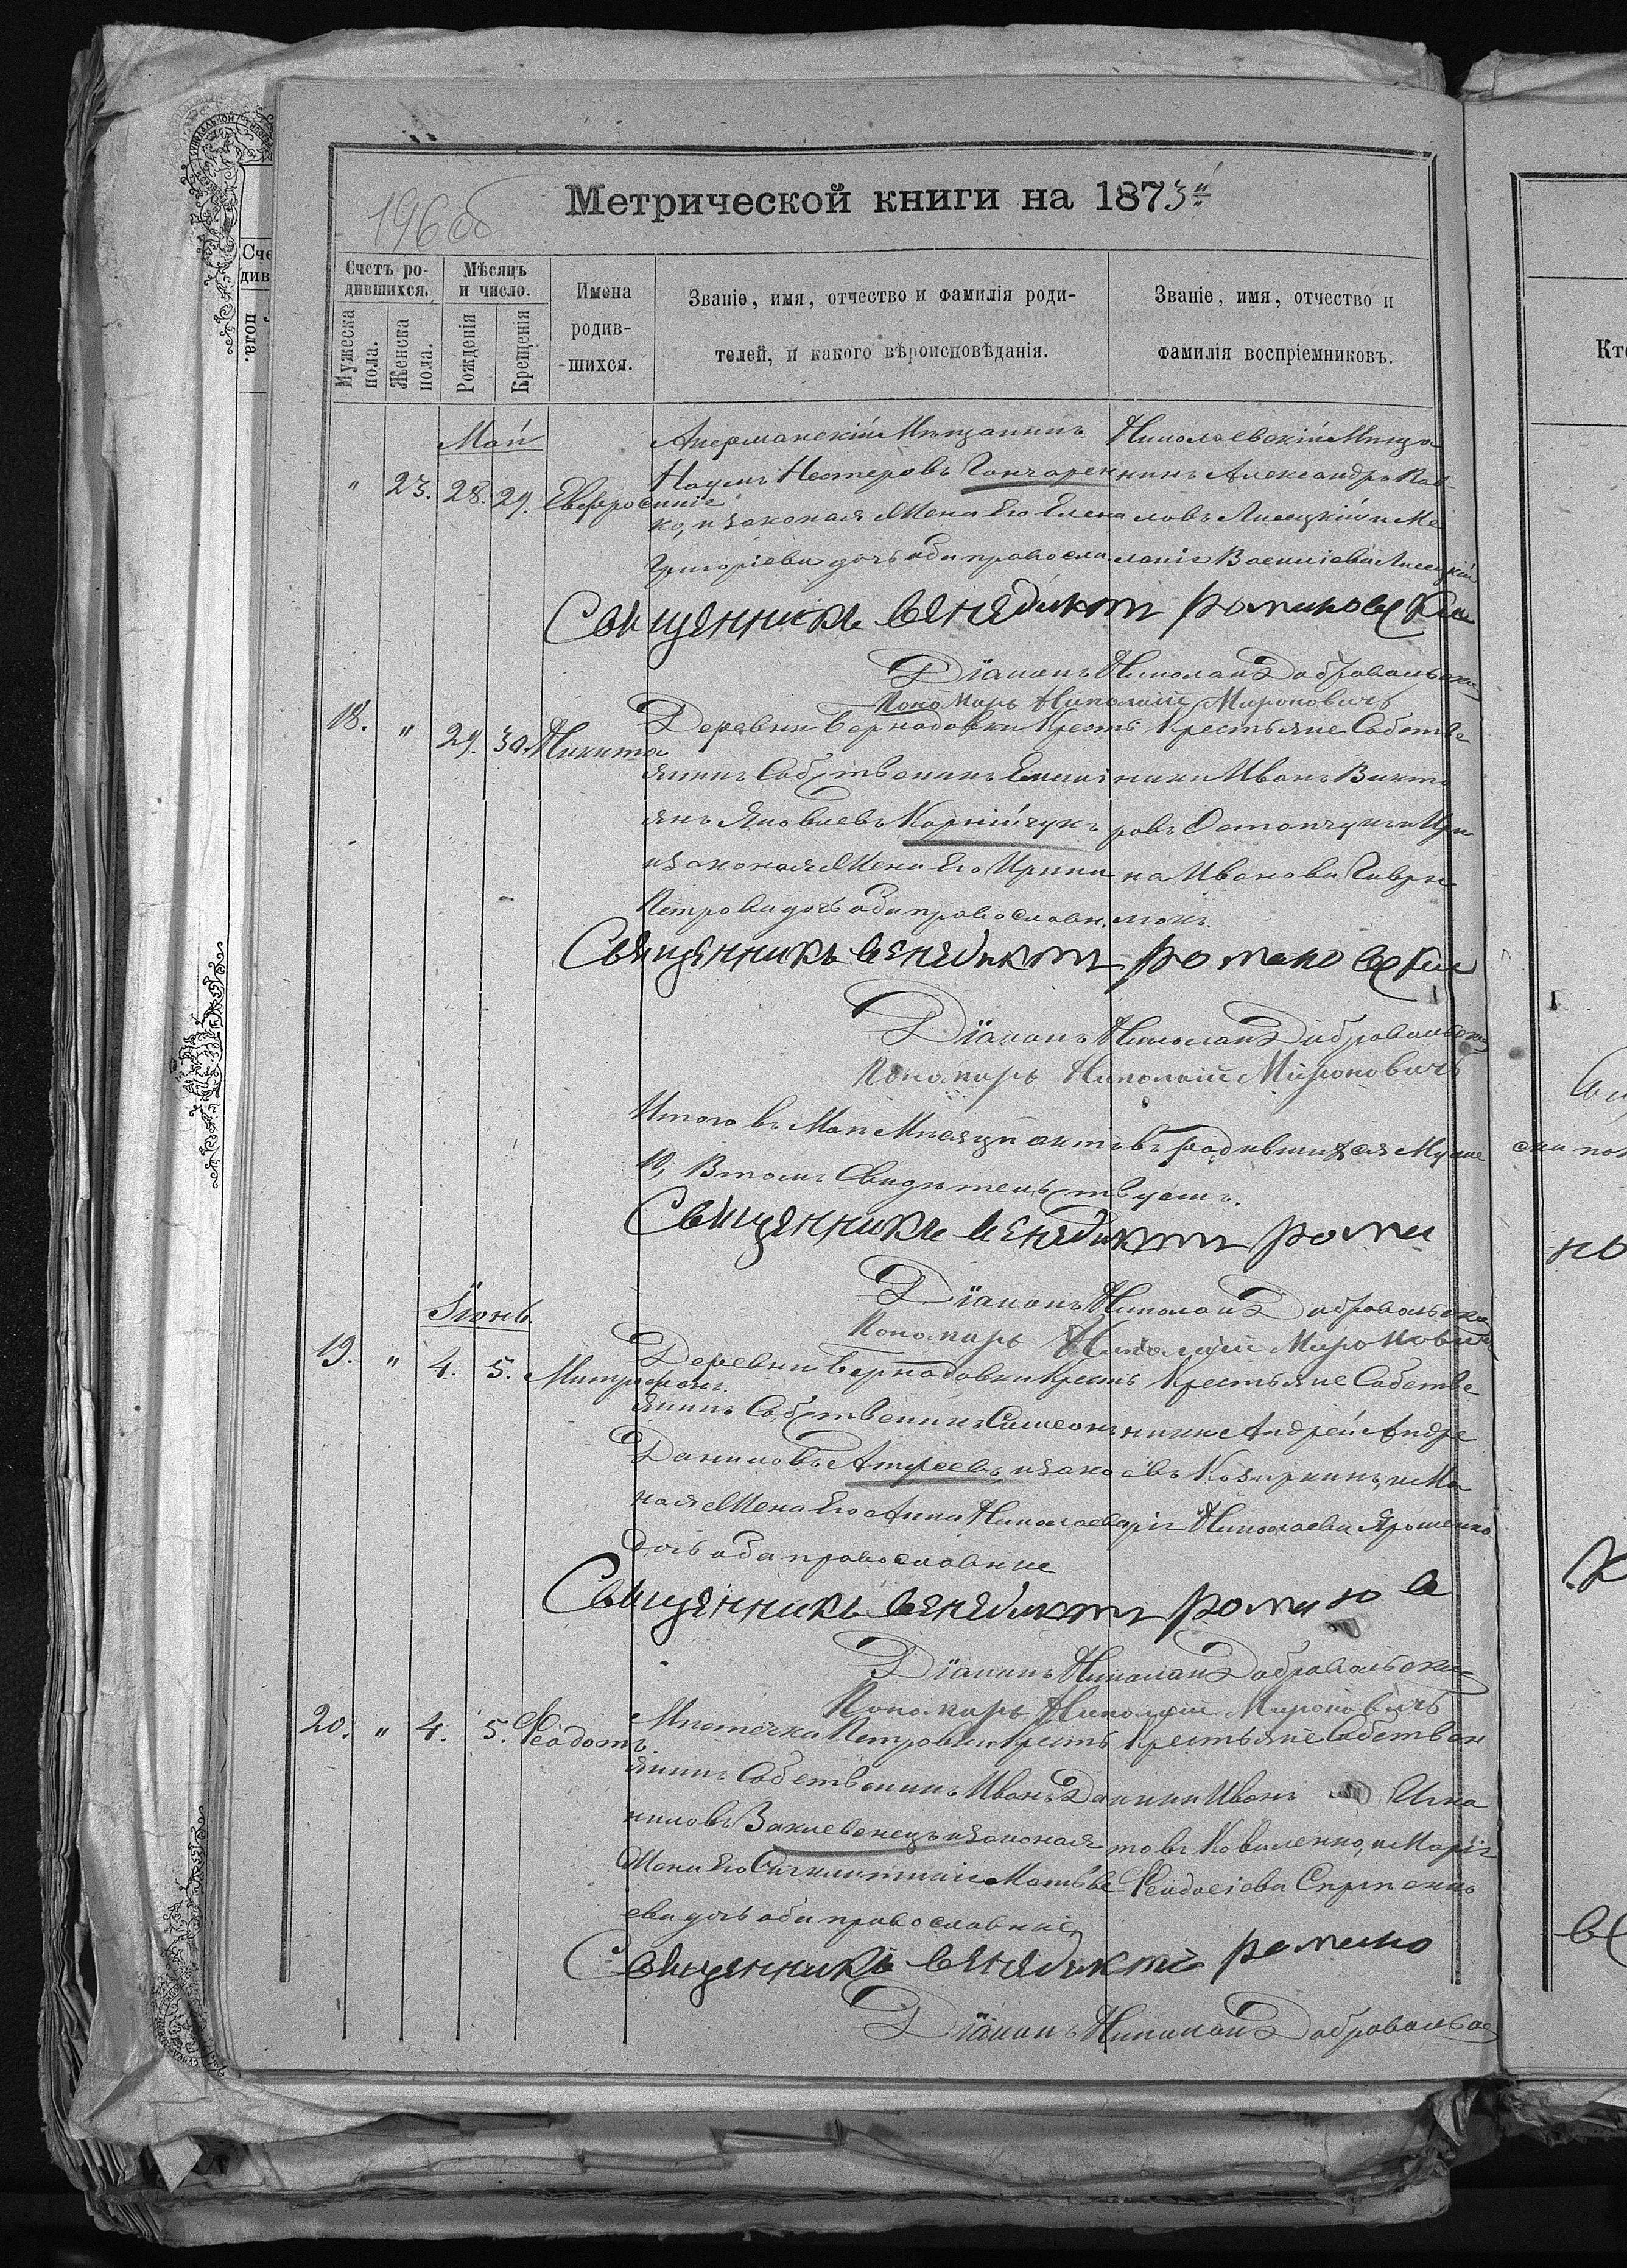 196 об
Метрической книги на 1873й
Счетъ ро-
дившихся.
Мѣсяцъ
и число.
Имена
родив-
-шихся.
Званіе, имя, отчество и фамилія роди-
телей, и какого вѣроисповѣданія.
Званіе, имя, отчество и
фамилія воспріемниковъ.
Мужеска
пола.
Женска
пола.
Рожденія
Крещенія
Май
" 23. 28. 29. Евфросинія
Мѣщанинъ
Наумъ Нестеровъ Гончарен
ко, и законая Жена Его Елена
Григоріева дочь оба православ.
Николаевскій Мѣща
нинъ Александръ Пав-
ловъ Лисецкій и Ме
ланія Василіева
Священникъ Венедиктъ Романовскій
Діаконъ Николай Добровольскій
Пономарь Николай Мироновичъ
18. " 29. 30. Никита
Деревни Бернадовки Кресть
янинъ Собственикъ Емелі
янъ Яковлевъ Корнійчукъ
и законая Жена Его Ирина
Петрова дочь оба православн.
Крестьяне Собстве
ники Иванъ Викто
ровъ Остапчукъ и Ири
на Иванова Гаври
люкъ
Священникъ Венедиктъ Романовскій
Діаконъ Николай Добровольскій
Пономарь Николай Мироновичъ
Итого въ Маѣ Мѣсяцѣ актовъ родившихся Муже
10, В томъ Свидѣтельствуемъ.
Священникъ Венедиктъ Рома
Діаконъ Николай Добровольскій
Пономарь Николай Мироновичъ
Іюнь.
19. " 4. 5. Митрофанъ.
Деревни Бернадовки Кресть
янинъ Собственикъ Симеонъ
Даниловъ Андреевъ и зако
ная Жена Его Анна Николаева
дочь оба православние
Крестьяне Собстве
ники Андрей Андре
евъ и Ма
рія Николаева Ярошенко
Священникъ Венедиктъ Романов
Діаконъ Николай Добровольскій
Пономарь Николай Мироновичъ
20. " 4. 5. Феодотъ.
Мѣстечка Петровки Кресть
янинъ Собственикъ Иванъ Да
ниловъ Заклевенецъ и законая
Жена Его Матвѣ
ева дочь оба православніе
Крестьяне Собствен
ники Иванъ Игна
товъ Коваленко, и Марія
Феодосіева
Священникъ Венедиктъ Романо
Діаконъ Николай Добровольскій